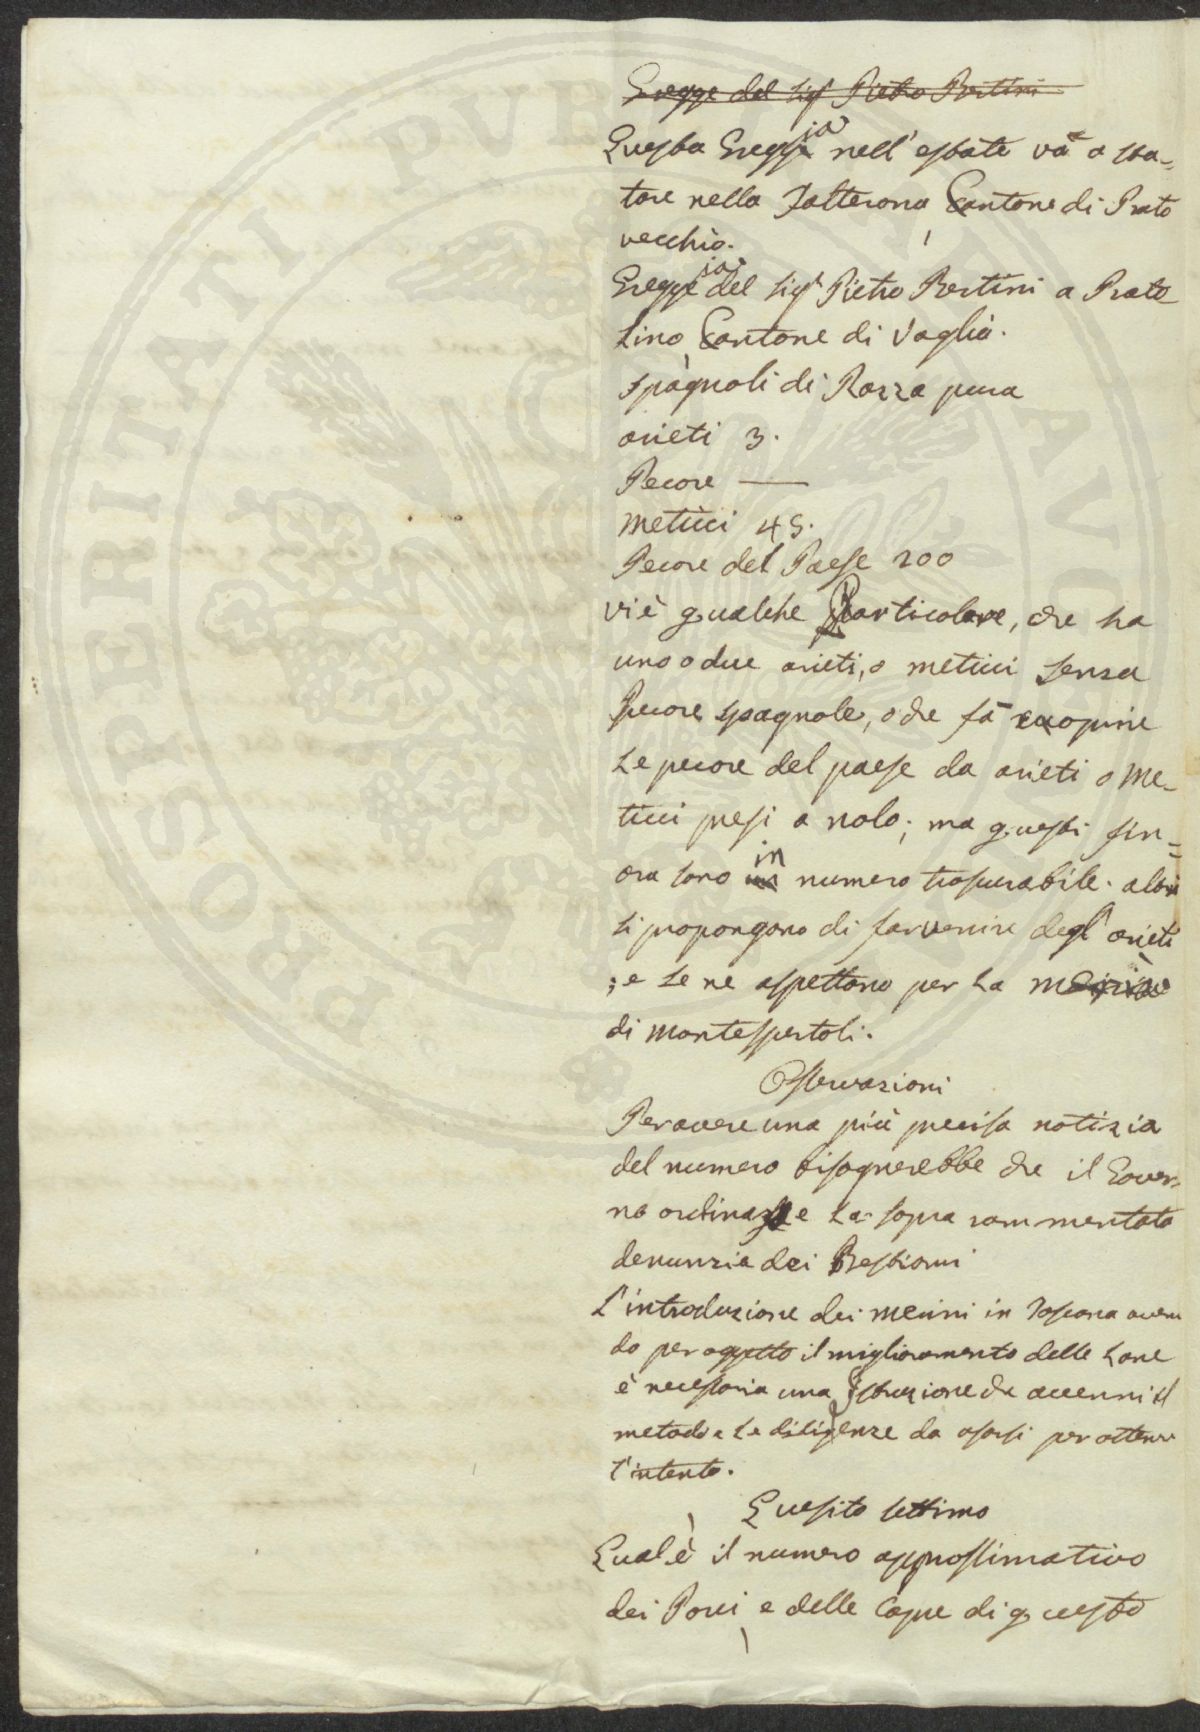 Gregge del Sigr Pietro Bertini
Questa Greggia nell'estate và a sta-
tare nella Falterona Cantone di Prato
vecchio.
Greggia del Sigr Pietro Bertini a Prato
lino Cantone di Vaglia.
Spagnoli di Razza pura
arieti 3.
Pecore —
Meticci 45.
Pecore del Paese 200
Vi è qualche Particolare, che ha
uno o due arieti, o meticci senza
Pecore spagnole, o che fà cuoprire
le pecore del paese da arieti o me-
ticci presi a nolo; ma questi fin=
ora sono in numero trascurabile. altri
si propongono di far venire degl'arieti
; e se ne aspettano per la
di Montespertoli.
Osservazioni
Per avere una più precisa notizia
del numero bisognerebbe che il Gover-
no ordinasse la sopra rammentata
denunzia dei Bestiami
L'introduzione dei merini in Toscana aven
do per oggetto il miglioramento delle Lane
è necessaria una Istruzione che accenni il
metodo e le diligenze da usarsi per ottener
l'intento.
Quesito settimo
Qual'è il numero approssimativo
dei Porci, e delle Capre di questo
PROSPERITATI PVBLICAE AVGENDAE